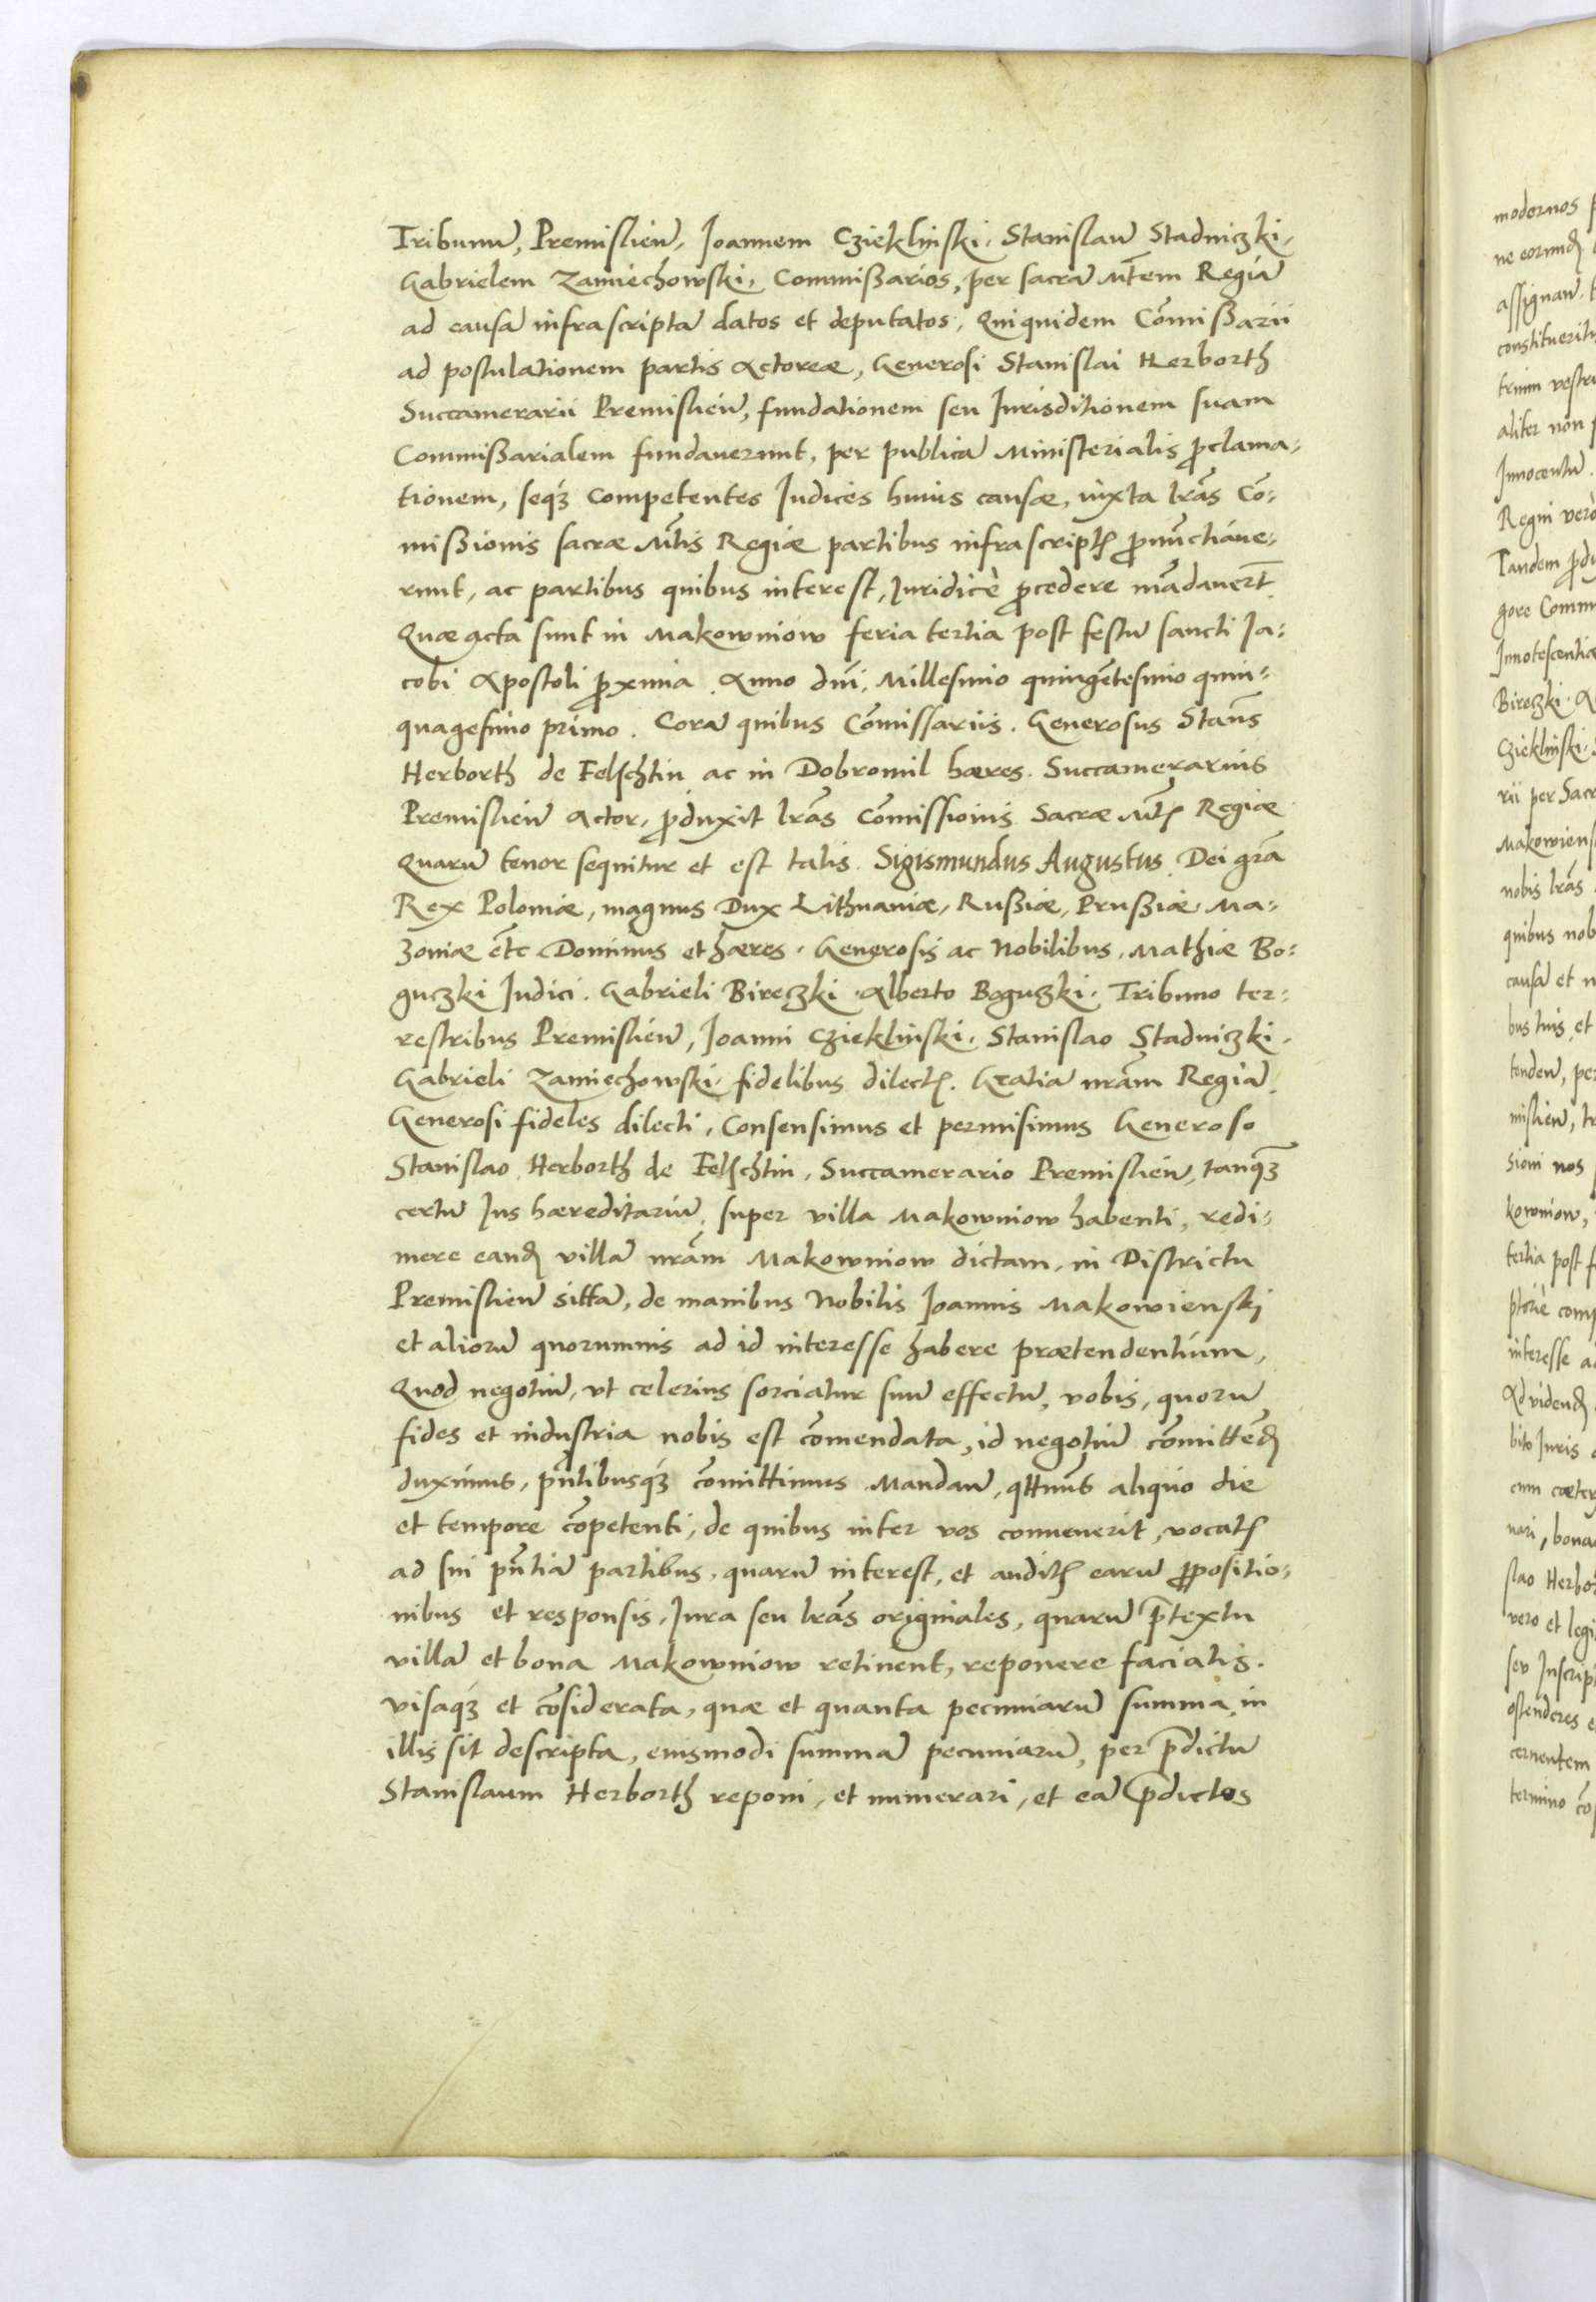 Tribunū, Premisliēn, Joannem Czieklinski, Stanislaū Stadniczki,
Gabrielem Zamiechowski, Commißarios, per sacrā M̄tem Regiā
ad causā infrascriptā datos et deputatos, Quiquidem Cōmißarii
ad postulationem partis Actoreæ, Generosi Stanislai Herborth
Succamerarii Premisliēn, fundationem seu Jurisditionem suam
Commißarialem fundauerunt, per publicā Ministerialis ꝓclama-
tionem, seqȝ Competentes Judices huius causæ, iuxta lr̄as Co-
mißionis sacræ M̄tis Regiæ partibus infrascriptꝭ ꝓnūctiaue-
runt, ac partibus quibus interest, Juridicè ꝓcedere mādauert̄
Quæ acta sunt in Makowniow feria tertia post festū sancti Ja-
cobi Apostoli ꝓxima Anno dn̄i, Millesimo quingētesimo quin-
quagesimo primo. Corā quibus Cōmissariis. Generosus Stan̄s
Herborth de Felschtin ac in Dobromil hæres. Succamerarius
Premisliēn Actor, ꝓduxit lr̄as Cōmissionis Sacræ M̄tꝭ Regiæ
Quarū tenor sequitur et est talis. Sigismundus Augustus Dei gr̄a
Rex Poloniæ, magnus Dux Lithuaniæ, Rußiæ, Prußiæ, Ma-
zoniæ et̄c Dominus et hæres. Generosis ac Nobilibus, Mathiæ Bo-
guczki Judici. Gabrieli Bireczki. Alberto Boguczki. Tribuno ter-
restribus Premisliēn, Joanni Czieklinski, Stanislao Stadniczki.
Gabrieli Zamiechowski, fidelibus dilectꝭ. Gratiā nr̄am Regiā.
Generosi fideles dilecti, Consensimus et permisimus Generoso
Stanislao Herborth de Felschtin, Succamerario Premisliēn, tanqȝ
certū Jus hæreditariū, super villa Makowniow habenti, redi-
mere eandꝭ villā nr̄am Makowniow dictam, in Districtu
Premisliēn sittā, de manibus Nobilis Joannis Makowienski
et aliorū quorumuis ad id interesse habere prætendentium,
Quod negotiū, vt celerius sorciatur suū effectū, vobis, quorū
fides et industria nobis est cōmendata, id negotiū cōmittēdꝭ
duximus, pn̄tibusqȝ cōmittimus Mandaū, qttnūs aliquo die
et tempore cōpetenti, de quibus inter vos conuenerit, vocatꝭ
ad sui pn̄tiā partibus, quarū interest, et auditꝭ earū ꝓpositio-
nibus et responsis, Jura seu lr̄as originales, quarū p̄textu
villā et bona Makowniow retinent, reponere faciatis.
visaqȝ et cōsiderata, quæ et quanta pecuniarū summa in
illis sit descripta, eiusmodi summā pecuniarū, per p̄dictū
Stanislaum Herborth reponi, et numerari, et eā p̄dictos
modernos
assignaū
Innocentū
Regni vero
Tandem
gore Comm
Innotescentiæ
Bireczki
Czieklinski
rii per Sacr
Makowiens
nobis lr̄as
quibus nob
causā et
bus tuis, et
tendeū, per
mislien, tr
sioni nos
kowniow,
tertia post f
interesse a
Ad videndꝭ
bito Juris
cum cæter
nari, bona
slao Herbor
vero et legi
seu Inscrip
ostenderes e
cernentem
termino